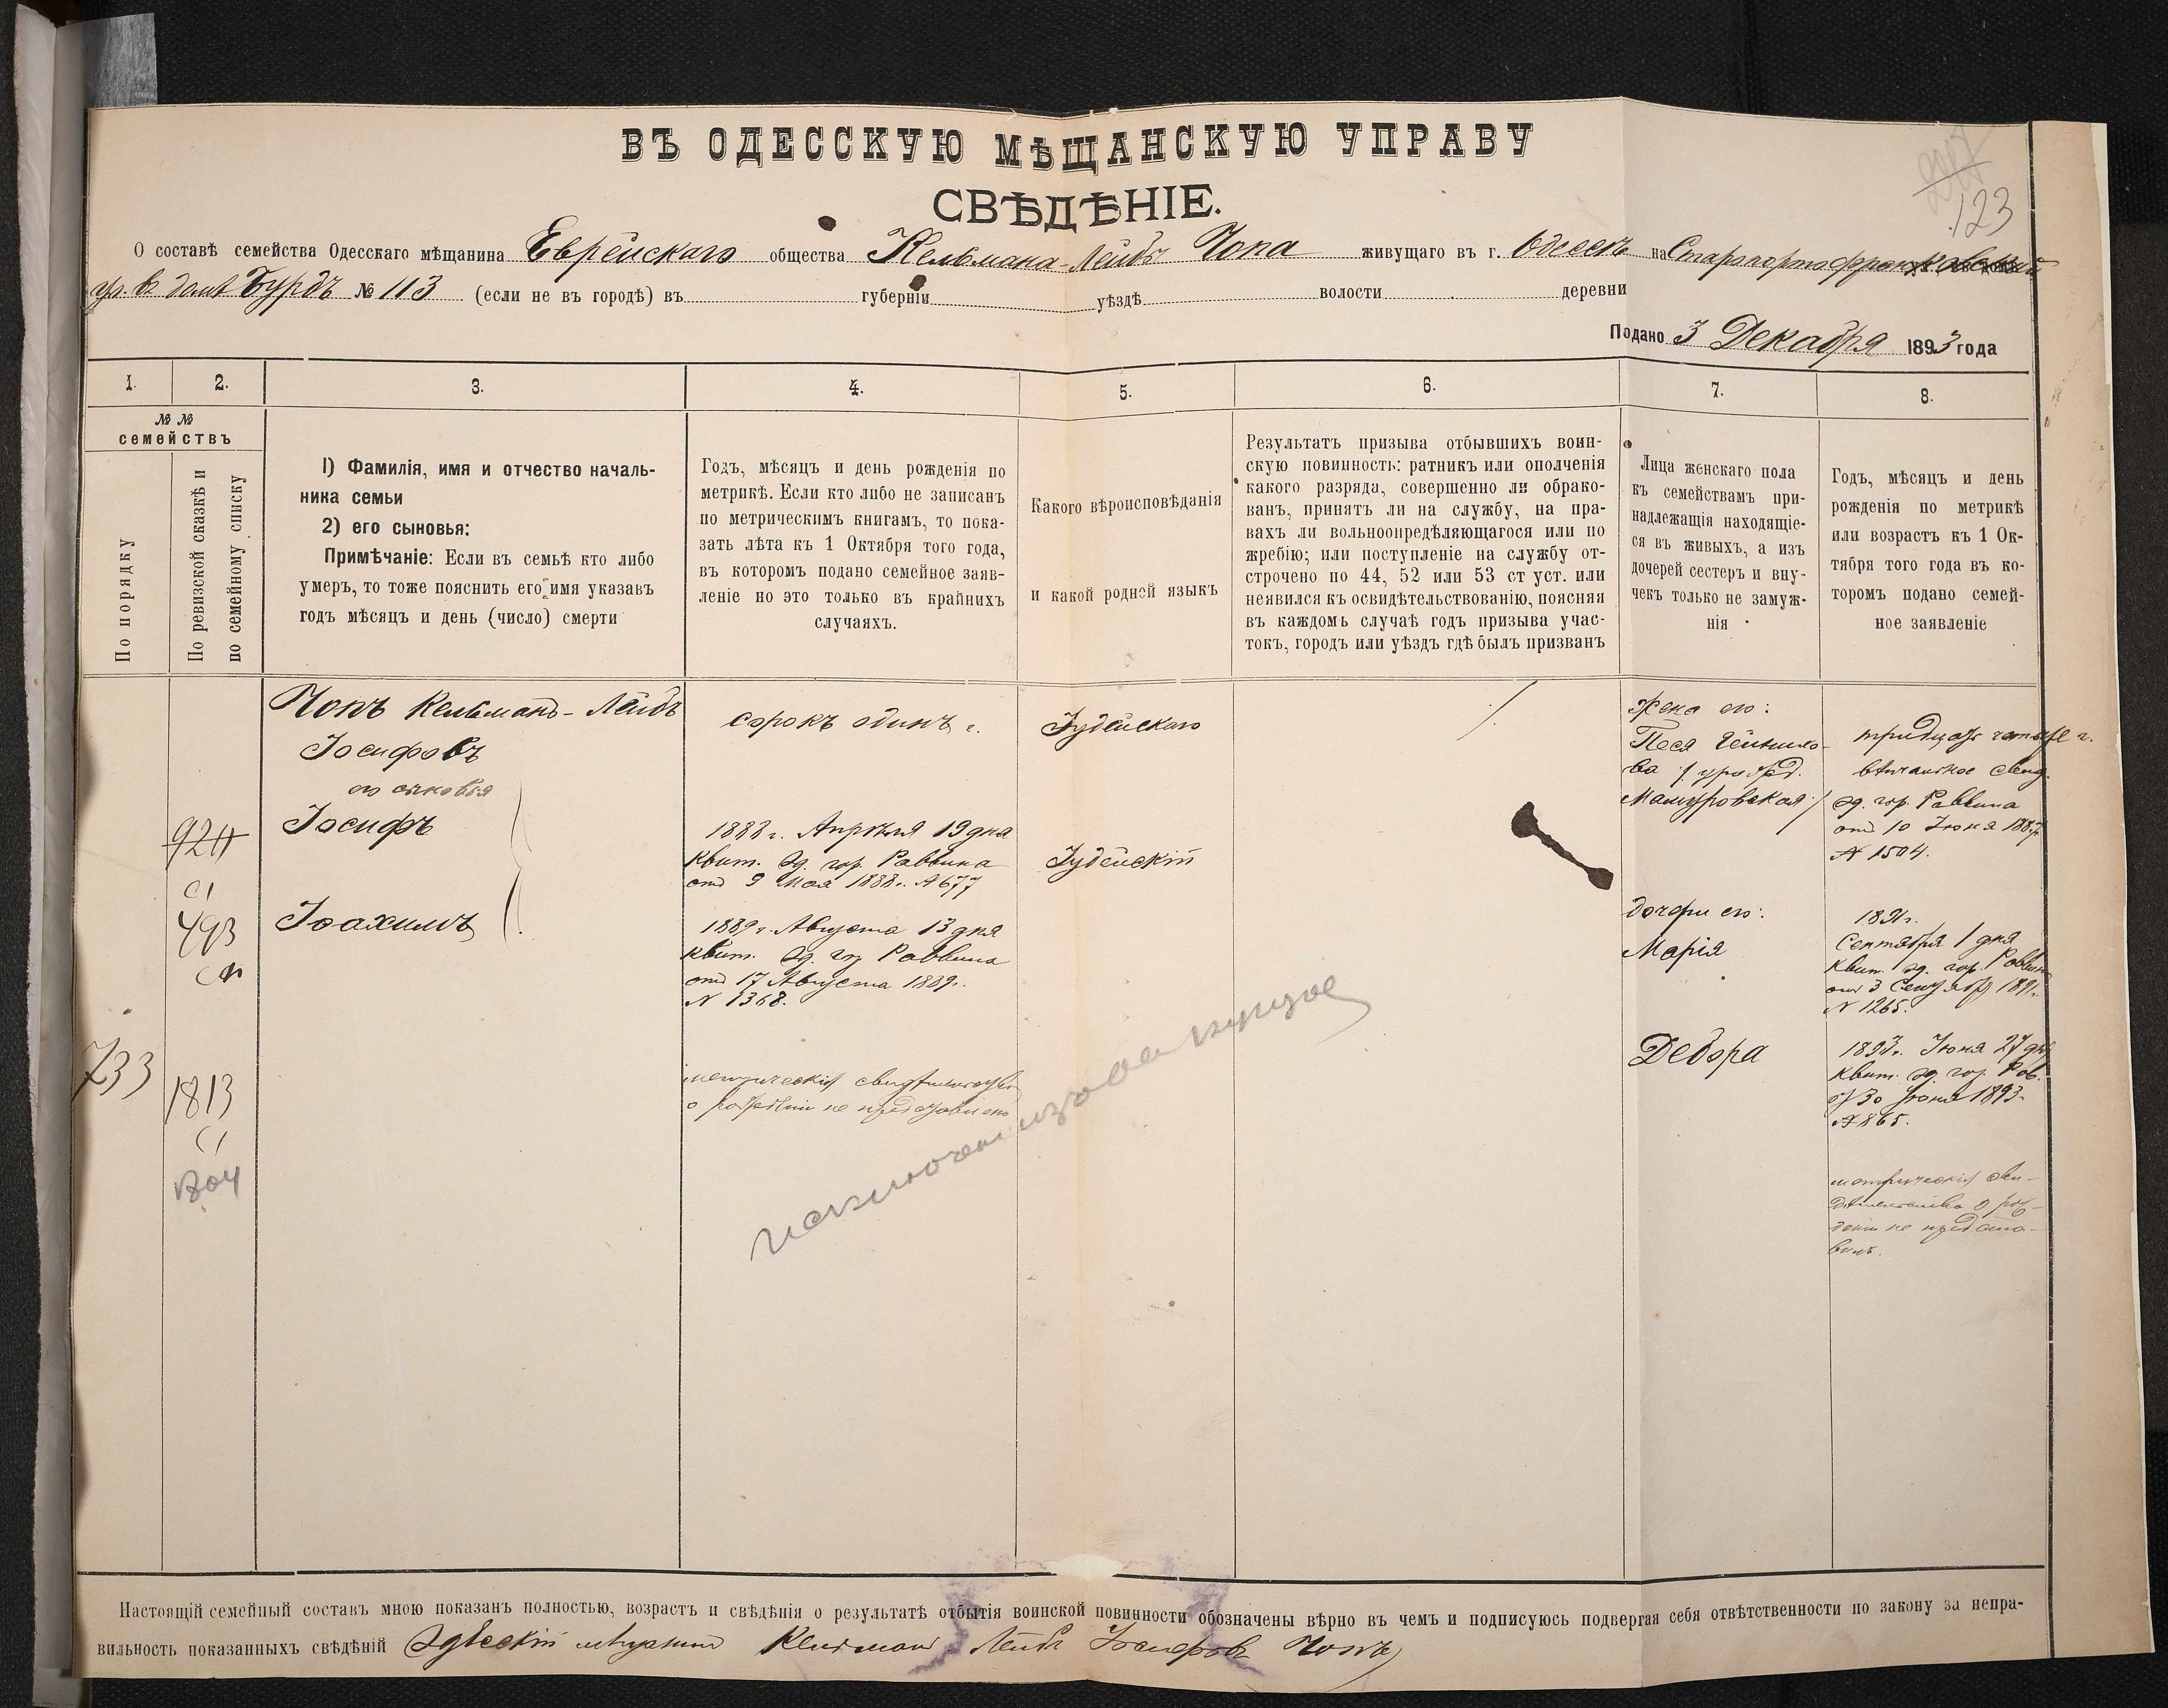 ВЪ ОДЕССКУЮ МѢЩАНСКУЮ УПРАВУ
СВѢДѢНІЕ.
123
О составѣ семейства Одесскаго мѣщанина Еврейскаго общества Кельмана-Лейбъ Чопа живущаго въ г. Одессѣ на Старопортофранковской
ул. в домѣ Бурдъ № 113 (если не въ городѣ) въ губерніи уѣздѣ волости деревни
Подано 3 Декабря 1893 года
1. 2. 3. 4. 5. 6. 7. 8.
№ №
семействъ
По порядку
По ревизской сказкѣ и
по семейному списку
1) Фамилія, имя и отчество началь-
ника семьи
2) его сыновья:
Примѣчаніе: Если въ семьѣ кто либо
умеръ, то тоже пояснить его имя указавъ
годъ мѣсяцъ и день (число) смерти
Годъ, мѣсяцъ и день рожденія по
метрикѣ. Если кто либо не записанъ
по метрическимъ книгамъ, то пока-
зать лѣта къ 1 Октября того года,
въ которомъ подано семейное заяв-
леніе но это только въ крайнихъ
случаяхъ.
Какого вѣроисповѣданія
и какой родной языкъ
Результатъ призыва отбывшихъ воин-
скую повинность: ратникъ или ополченія
какого разряда, совершенно ли обрако-
ванъ, принятъ ли на службу, на пра-
вахъ ли вольноопредѣляющагося или по
жребію; или поступленіе на службу от-
строчено по 44, 52 или 53 ст уст. или
неявился къ освидѣтельствованію, поясняя
въ каждомъ случаѣ годъ призыва учас-
токъ, городъ или уѣздъ гдѣ былъ призванъ
Лица женскаго пола
къ семействамъ при-
надлежащія находящіе-
ся въ живыхъ, а изъ
дочерей сестеръ и вну-
чекъ только не замуж-
нія
Годъ, мѣсяцъ и день
рожденія по метрикѣ
или возрастъ къ 1 Ок-
тября того года въ ко-
торомъ подано семей-
ное заявленіе
924
493
733
1813
1804
Чопъ Кельманъ-Лейбъ
Іосифовъ
его сыновья
Іосифъ
Іоахимъ
сорокъ одинъ г.
1888 г. Апрѣля 19 дня
квит. Од. гор. Раввина
отъ 9 Мая 1888 г. № 677
1889 г. Августа 13 дня
квит. Од. гор Раввина
отъ 17 Августа 1889 г.
N 1368.
метрическія свидѣтельства
о рожденіи не представлены
Іудейскаго
Іудейскій
исключен изъ
жена его:
Песя
ва / урожд.
/
тридцать четыре г.
вѣнчальное свид.
Од. гор. Раввина
отъ 10 Іюня 1887
№ 1504.
дочери его:
Марія
Дебора
1891 г.
Сентября 1 дня
квит. Од. гор. Раввина
отъ 3 Сентября 1891 г.
N 1265.
1893 г. Іюня 27 дня
квит. Од. гор. Рав.
от 30 Іюня 1893
№ 865.
метрическія сви-
дѣтельства о рож-
деніи не предста-
вилъ.
Настоящій семейный составъ мною показанъ полностью, возрастъ и свѣдѣнія о результатѣ отбытія воинской повинности обозначены вѣрно въ чемъ и подписуюсь подвергая себя отвѣтственности по закону за непра-
вильность показанныхъ свѣдѣній Одесскій мѣщанинъ Кельманъ Лейбъ Іосифовъ Чопъ